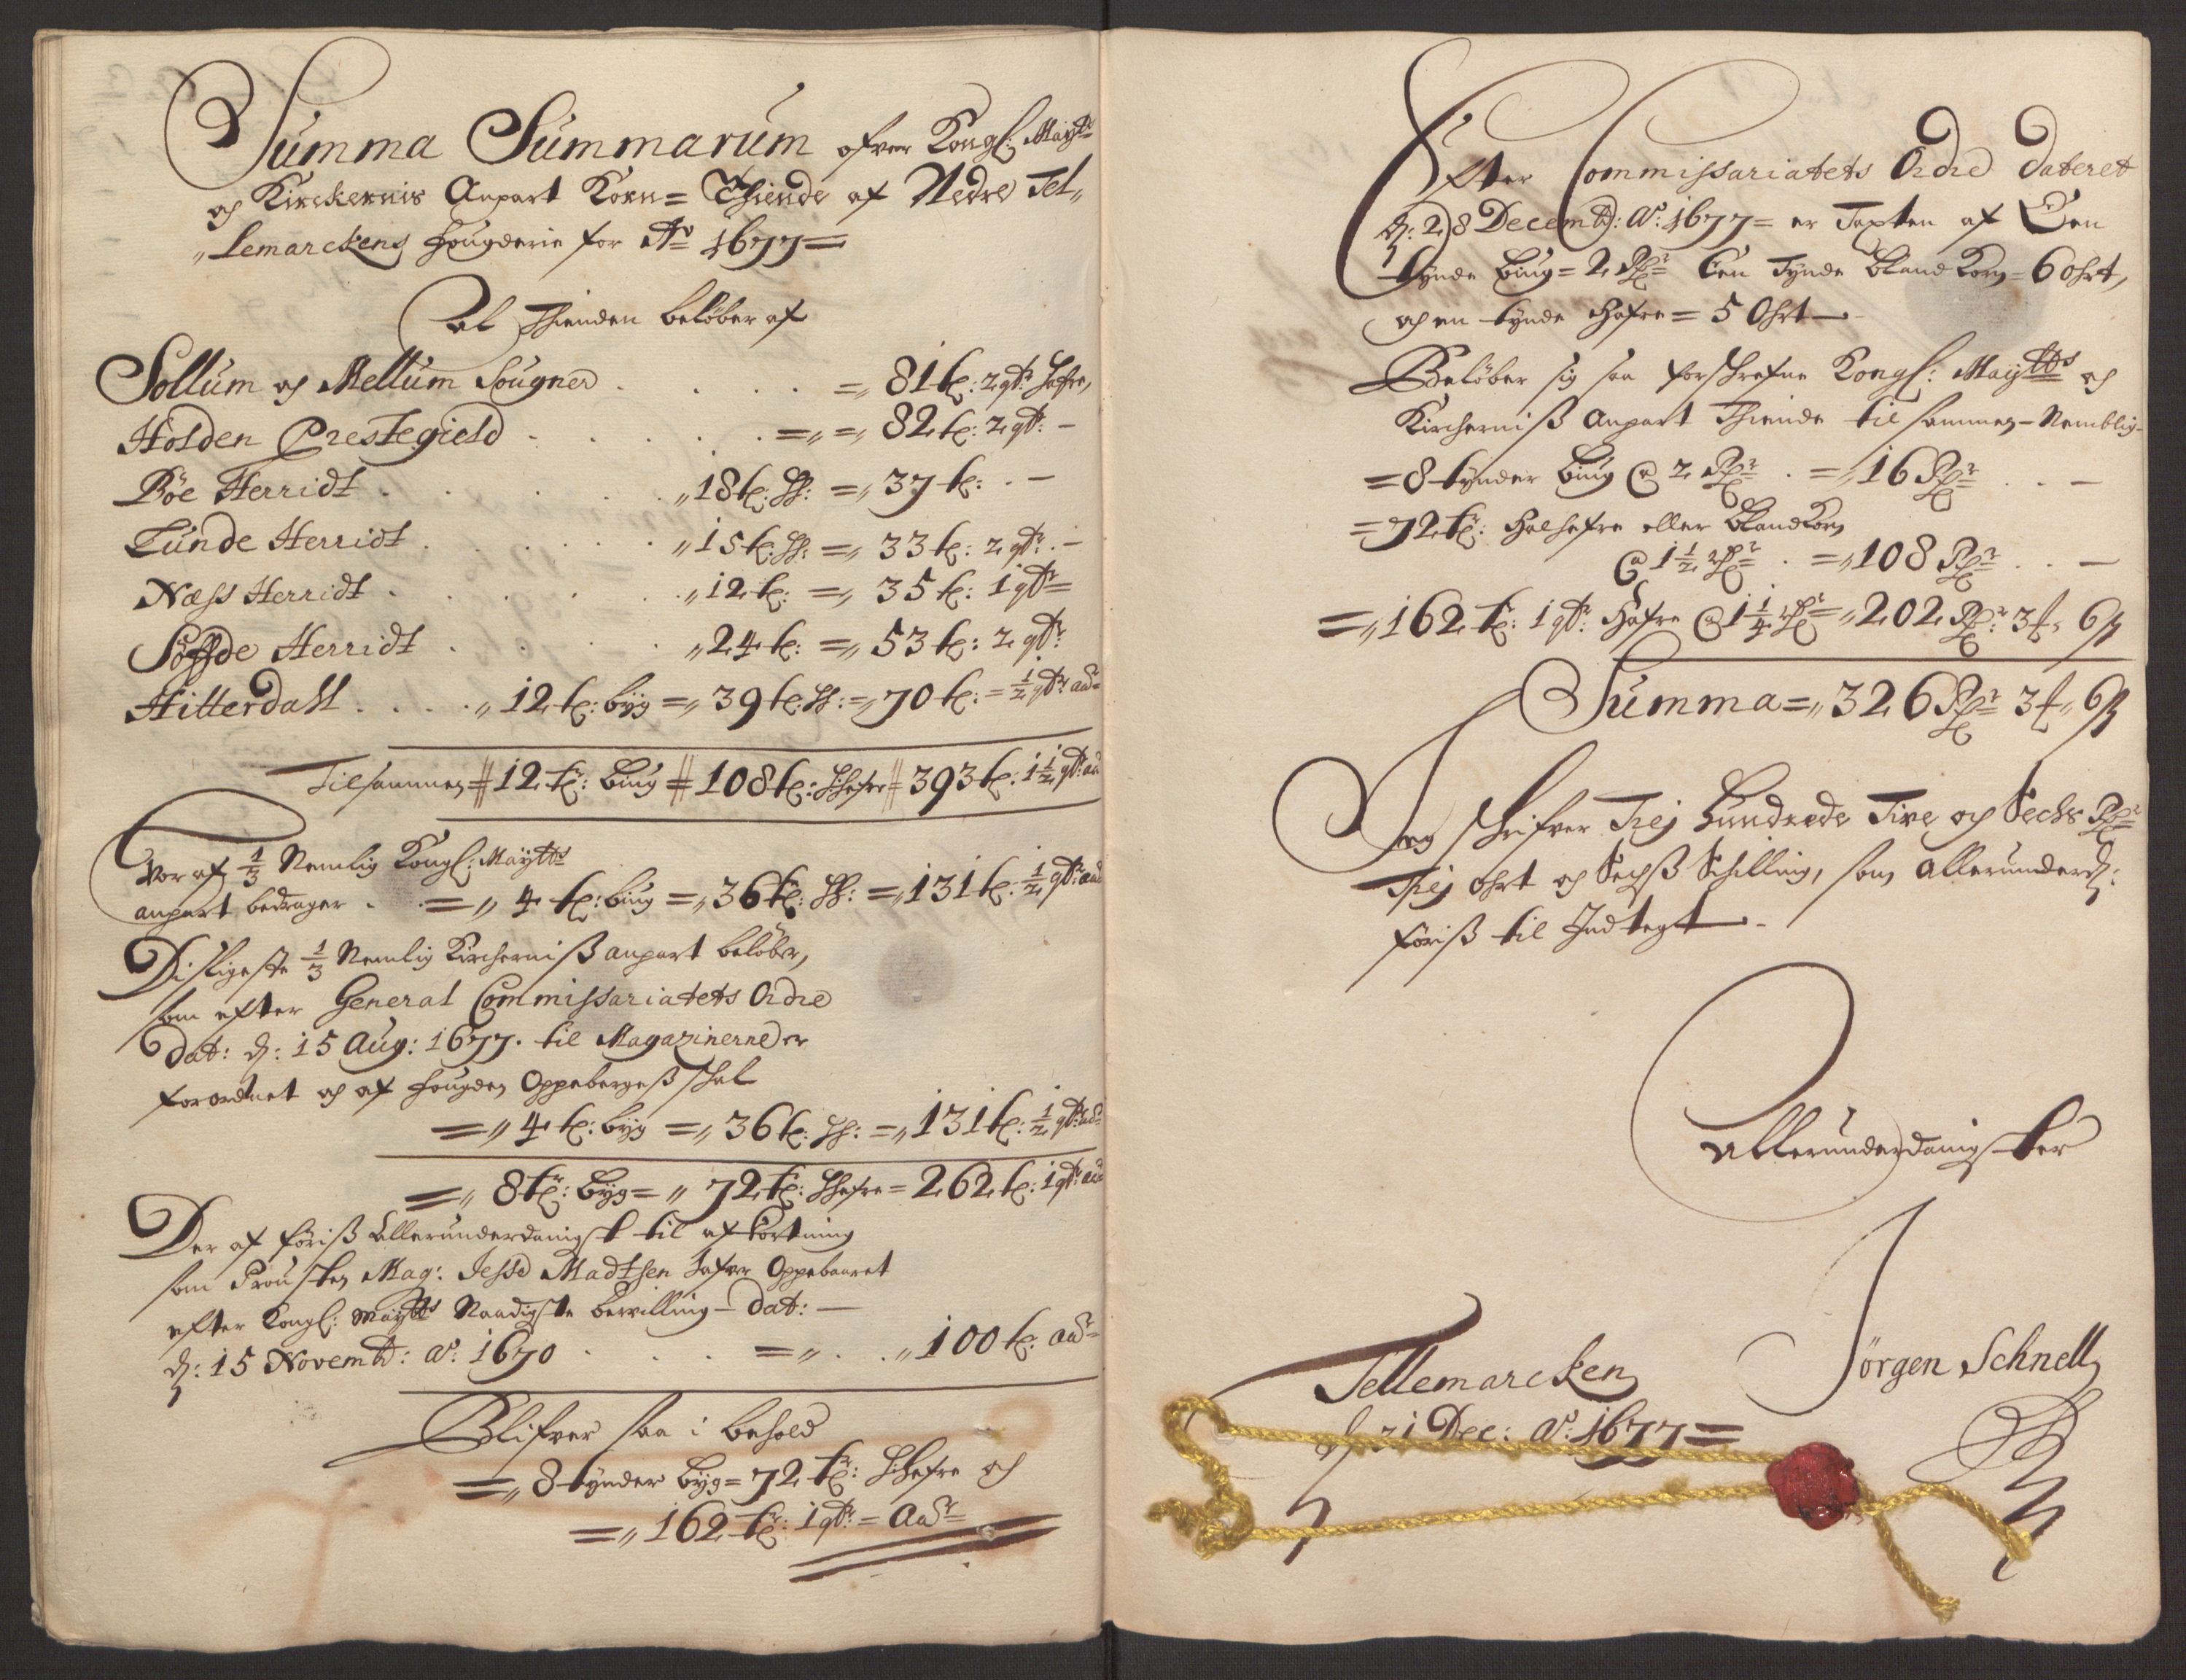 Summa Summarum ofver Kongl: Maytz
og Kirckernis Anpart Korn= Thiende af Nedre Tel„
„lemarckens fougderie for Ao 1677=
Al Thienden beløber af
Sollum og Mellum Sougner . . . . =„ 81 t: 2 qtr hafre,
Holden Prestegield . . . . . =„=„ 82 t: 2 qtr: –
Böe Herridt . . . . . „18 t: Hh: =„ 37 t: . –
Lunde Herridt . . . . . „15 t: Hh: =„ 33 t: 2 qtr: . –
Næss Herridt . . . . . „12 t: =„ 35 t: 1 qtr=
Söffde Herridt . . . . „24 t: =„ 53 t: 2 qtr:
Hitterdall . . . . „12 t: byg =„ 39 t: Hh: =„ 70 t: = ½ qtr: adr=
Tilsammen # 12 tr: Biug # 108 t: Hhafre # 393 t: 1½ qtr: ad
Vor af 1/3 Nemlig Kongl: Maytts
anpart bedrager . =„ 4 t: biug =„ 36 t: Hh: =„ 131 t: ½ qtr: ad
Disligeste 1/3 Nemlig Kircherniss anpart beløber,
som efter General Commissariatets Ordre
Dat: d: 15 Aug: 1677. til Magazinerne er
forordnet og af fougden Oppebergess schal
=„ 4 t: byg =„ 36 t: Hh: =„ 131 t: ½ qtr: adr
=„ 8 tr: Byg =„ 72 t: Hhafre = 262 t: 1 qtr: ad
Der af føriss Allerunderdanigst til afkortning
som Prousten Mag: Jesse Madtsen hafver Oppebaaret
efter Kongl: Maytts Naadigste bevilling – dat: –
d: 15 Novembr: Ao: 1670 . . . =„ . . „100 t: adr=
Blifver saa i behold
=„ 8 tynder byg = 72 tr: Hhafre og
=„ 162 tr: 1 qtr: = Adr=
Efter Commissariatets Ordre Dateret
d: 28 Decembr: Ao: 1677 = er Taxten af Een
tynde Biug = 2 Rdr= Een Tynde Bland Korn = 6 ohrt,
og en tynde Hafre = 5 Ohrt –
Beløber sig saa forschrefne Kongl: Maytts og
Kircherniss Anpart Thiende til sammen – Nemblig –
= 8 tynder Biug @ 2 Rdr= . =„ 16 Rdr= . . –
= 72 tr: Halhafre eller Blandkorn
@ 1½ Rdr= . =„ 108 Rdr= . . –
=„ 162 tr: 1 qtr: Hafre @ 1¼ Rdr= =„ 202 Rdr: 3 £„ 6 ß
Summa =„ 326 Rdr= 3 £„ 6 ß
Jeg schrifver Trej Hundrede Tive og Sechs Rdr=
Trej ohrt og Sechss Schilling, som Allerunderd:
føriss til Indtegt –
Allerunderdanigster
Tellemarcken
d: 31 Dec: Ao: 1677=
Jörgen Schnell